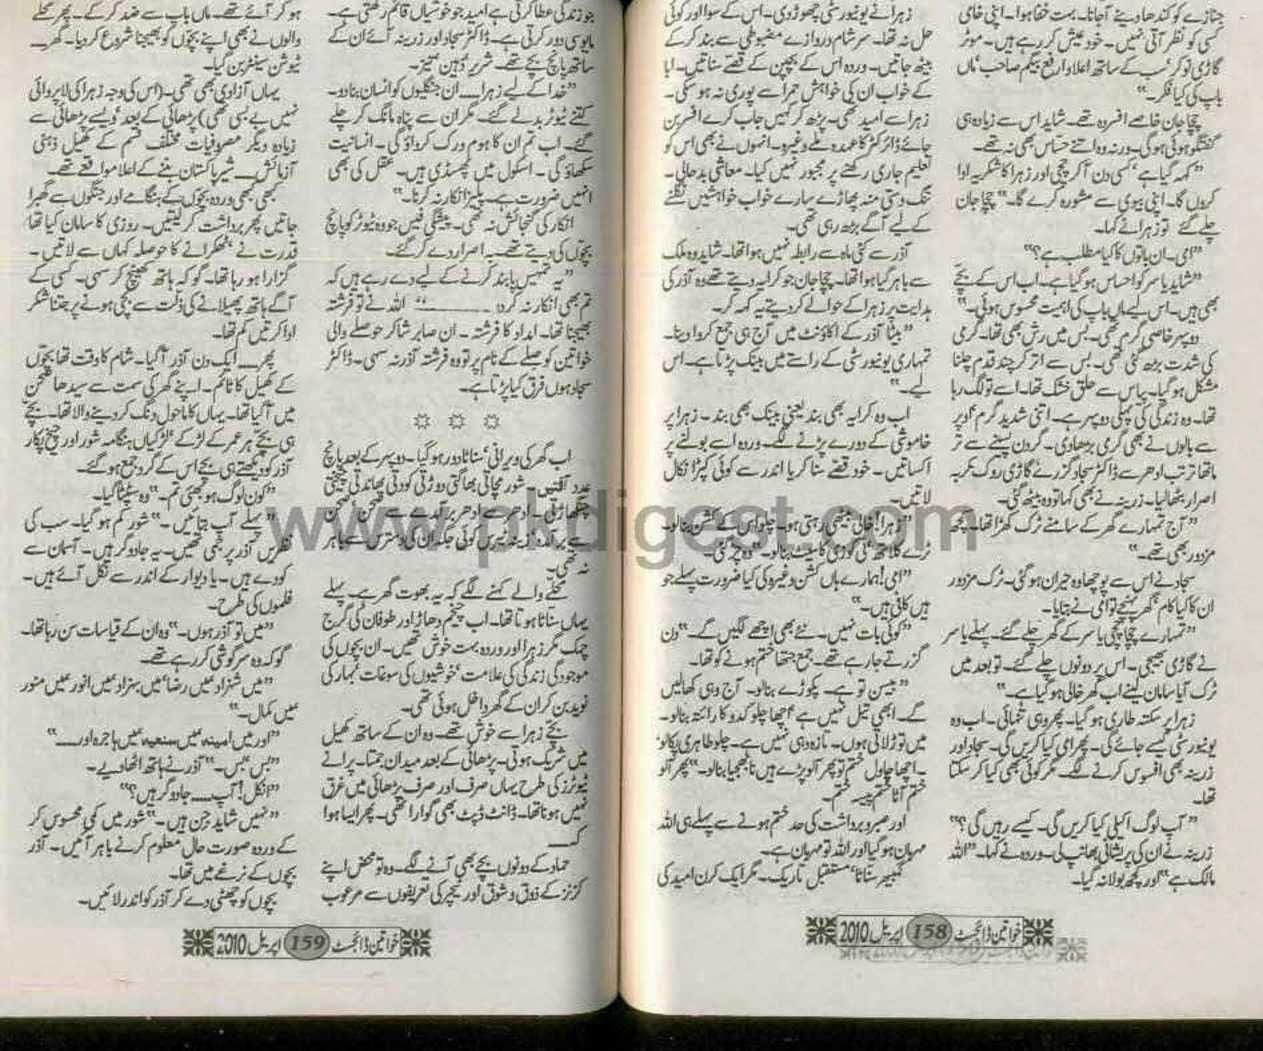 جنازے کو کندھا دینے آجانا۔ بہت خفا ہوا۔ اپنی خامی
کسی کو نظر آتی نہیں۔ خود عیش کر رہے ہیں۔ موٹر
گاڑی نوکر سب کے ساتھ اعلا وارفع بیگم صاحب، ماں
باپ کی کیا فکر۔"
چچا جان خاصے افسردہ تھے۔ شاید اس سے زیادہ ہی
گفتگو ہوئی ہوگی۔ ورنہ وہ اتنے حساس بھی نہ تھے۔
"کہہ گیا ہے، کسی دن آکر چچی اور زہرا کا شکریہ ادا
کروں گا۔ اپنی بیوی سے مشورہ کرے گا۔" چچا جان
چلے گئے تو زہرا نے کہا۔
"امی۔ ان باتوں کا کیا مطلب ہے؟"
"شاید یاسر کو احساس ہوگیا ہے۔ اب اس کے بچے
بھی ہیں۔ اس لیے ماں باپ کی اہمیت محسوس ہوئی۔"
دوپہر خاصی گرم تھی۔ بس میں رش بھی تھا۔ گرمی
کی شدت بڑھ گئی تھی۔ بس سے اتر کر چند قدم چلنا
مشکل ہوگیا۔ پیاس سے حلق خشک تھا۔ اسے تو لگ رہا
تھا۔ وہ زندگی کی پہلی دوپہر ہے۔ اتنی شدید گرم اوپر
سے بالوں نے بھی گرمی بڑھا دی۔ گردن پسینے سے تر
ماتھا تر تب ادھر سے ڈاکٹر سجاد گزرے گاڑی روک کر بہ
اصرار بٹھا لیا۔ زرینہ نے بھی کہا تو وہ بیٹھ گئی۔
"آج تمہارے گھر کے سامنے ٹرک کھڑا تھا۔ کچھ
مزدور بھی تھے۔"
سجاد نے اس سے پوچھا وہ حیران ہوگئی۔ ٹرک مزدور
ان کا کیا کام، گھر پہنچے تو امی نے بتایا۔
"تمہارے چچا چچی یاسر کے گھر چلے گئے۔ پہلے یاسر
نے گاڑی بھیجی۔ اس پر دونوں چلے گئے۔ تو بعد میں
ٹرک آیا سامان لینے اب گھر خالی ہوگیا ہے۔"
زہرا پر سکتہ طاری ہوگیا۔ پھر وہی تنہائی۔ اب وہ
یونیورسٹی کیسے جائے گی۔ پھر امی کیا کریں گی۔ سجاد اور
زرینہ بھی افسوس کرنے لگے۔ مگر کوئی بھی کیا کر سکتا
تھا۔
"آپ لوگ اکیلی کیا کریں گی۔ کیسے رہیں گی؟"
زرینہ نے ان کی پریشانی بھانپ لی۔ وردہ نے کہا۔ "اللہ
مالک ہے" اور کچھ بولا نہ گیا۔
زہرا نے یونیورسٹی چھوڑ دی۔ اس کے سوا اور کوئی
حل نہ تھا۔ سر شام دروازے مضبوطی سے بند کر کے
بیٹھ جاتیں۔ وردہ اس کے بچپن کے قصے سناتیں۔ ابا
کے خواب ان کی خواہش حمرا سے پوری نہ ہوسکی۔
زہرا سے امید تھی۔ پڑھ کر کہیں جاب کرے افسر بن
جائے ڈائرکٹر کا عہدہ ملے وغیرہ۔ انہوں نے بھی اس کو
تعلیم جاری رکھنے پر مجبور نہیں کیا۔ معاشی بدحالی۔
تنگ دستی منہ پھاڑے سارے خواب خواہشیں نگلنے
کے لیے آگے بڑھ رہی تھی۔
آذر سے کئی ماہ سے رابطہ نہیں ہوا تھا۔ شاید وہ ملک
سے باہر گیا ہوا تھا۔ چچا جان جو کرایہ دیتے تھے وہ آذر کی
ہدایت پر زہرا کے حوالے کر دیتے یہ کہہ کر۔
"بیٹا آذر کے اکاؤنٹ میں آج ہی جمع کروا دینا۔
تمہاری یونیورسٹی کے راستے میں بینک پڑتا ہے۔ اس
لیے۔"
اب وہ کرایہ بھی بند یعنی بینک بھی بند۔ زہرا پر
خاموشی کے دورے پڑنے لگے۔ وردہ اسے بولنے پر
اکساتیں۔ خود قصے سنا کر یا اندر سے کوئی کپڑا نکال
لاتیں۔
"زہرا! خالی بیٹھی رہتی ہو۔ چلو اس کے کشن بنالو۔
"امی! ہمارے ہاں کشن وغیرہ کی کیا ضرورت پہلے جو
ہیں کافی ہیں۔"
"کوئی بات نہیں۔ نئے بھی اچھے لگیں گے۔" دن
گزرتے جا رہے تھے۔ جمع جتھا ختم ہونے کو تھا۔
"بیسن تو ہے۔ پکوڑے بنالو۔ آج وہی کھالیں
گے۔ ابھی تیل نہیں ہے؟ اچھا چلو کدو کا رائتہ بنالو۔
میں توڑ لاتی ہوں۔ تازہ دہی نہیں ہے۔ چلو طاہری پکالو
۔ اچھا چاول ختم تو پھر آلو پڑے ہیں نا بھجیا بنالو۔" پھر آلو
ختم آٹا ختم پیسہ ختم۔
اور صبر و برداشت کی حد ختم ہونے سے پہلے ہی اللہ
مہربان ہوگیا اور اللہ تو مہربان ہے۔
گمبھیر سناٹا، مستقبل تاریک۔ مگر ایک کرن امید کی
خواتین ڈائجسٹ 158 اپریل 2010
جو زندگی عطا کرتی ہے امید جو خوشیاں قائم رکھتی ہے۔
مایوسی دور کرتی ہے۔ ڈاکٹر سجاد اور زرینہ آئے ان کے
ساتھ پانچ بچے تھے۔ شریر ذہین تمیز۔
"خدا کے لیے زہرا... ان جنگلیوں کو انسان بنادو۔
کتنے ٹیوٹر بدلے گئے۔ مگر ان سے پناہ مانگ کر چلے
گئے۔ اب تم ان کا ہوم ورک کرواؤ گی۔ انسانیت
سکھاؤ گی۔ اسکول میں پھسڈی ہیں۔ عقل کی بھی
انہیں ضرورت ہے۔ پلیز انکار نہ کرنا۔"
انکار کی گنجائش نہ تھی۔ پیشگی فیس جو وہ ٹیوٹر کو پانچ
بچوں کی دیتے تھے۔ بہ اصرار دے کر گئے۔
"یہ تمہیں پابند کرنے کے لیے دے رہے ہیں کہ
تم بھی انکار نہ کردو۔" اللہ نے تو فرشتہ
بھیجا تھا۔ امداد کا فرشتہ۔ ان صابر شاکر حوصلے والی
خواتین کو صلے کے نام پر تو وہ فرشتہ آذر نہ سہی۔ ڈاکٹر
سجاد ہوں فرق کیا پڑتا ہے۔
☼ ☼ ☼
اب گھر کی ویرانی، سناٹا دور ہوگیا۔ دوپہر کے بعد پانچ
عدد آفتیں۔ شور مچاتی بھاگتی دوڑتی کودتی پھاندتی چیختی
نہ تھی۔
محلے والے کہنے لگے کہ یہ بھوت گھر ہے۔ پہلے
یہاں سناٹا ہوتا تھا۔ اب چیخم دھاڑ اور طوفان کی گرج
چمک مگر زہرا اور وردہ بہت خوش تھیں۔ ان بچوں کی
موجودگی زندگی کی علامت، خوشیوں کی سوغات، بہار کی
نوید بن کر ان کے گھر داخل ہوئی تھی۔
بچے زہرا سے خوش تھے۔ وہ ان کے ساتھ کھیل
میں شریک ہوتی۔ پڑھائی کے بعد میدان جمتا۔ پرانے
ٹیوٹرز کی طرح یہاں صرف اور صرف پڑھائی میں غرق
نہیں ہونا تھا۔ ڈانٹ ڈپٹ بھی گوارا تھی۔ پھر ایسا ہوا
کہ
حماد کے دونوں بچے بھی آنے لگے۔ وہ تو محض اپنے
کزنز کے ذوق و شوق اور ٹیچر کی تعریفوں سے مرعوب
ہو کر آئے تھے۔ ماں باپ سے ضد کر کے۔ پھر محلے
والوں نے بھی اپنے بچوں کو بھیجنا شروع کر دیا۔ گھر...
ٹیوشن سینٹر بن گیا۔
یہاں آزادی بھی تھی۔ (اس کی وجہ زہرا کی لاپروائی
نہیں بے بسی تھی) پڑھائی کے بعد، ویسے پڑھائی سے
زیادہ دیگر مصروفیات مختلف قسم کے کھیل ذہنی
آزمائش... شیر پاکستان بننے کے اعلا مواقع تھے۔
کبھی کبھی وردہ بچوں کے ہنگامے اور جنگوں سے گھبرا
جاتیں پھر برداشت کر لیتیں۔ روزی کا سامان کیا تھا
قدرت نے، ٹھکرانے کا حوصلہ کہاں سے لاتیں۔
گزارا ہو رہا تھا۔ گو کہ ہاتھ کھینچ کر سہی۔ کسی کے
آگے ہاتھ پھیلانے کی ذلت سے بچی ہونے پر جتنا شکر
ادا کرتیں کم تھا۔
پھر... ایک دن آذر آگیا۔ شام کا وقت تھا بچوں
کے کھیل کا ٹائم۔ اپنے گھر کی سمت سے سیدھا صحن
میں آگیا تھا۔ یہاں کا ماحول دنگ کر دینے والا تھا۔ بچے
ہی بچے ہر عمر کے لڑکے، لڑکیاں ہنگامہ شور اور چیخ پکار
آذر کو دیکھتے ہی بچے اس کے گرد جمع ہوگئے۔
"کون لوگ ہو تھیں تم۔" وہ سٹپٹا گیا۔
"پہلے آپ بتائیں۔" شور کم ہوگیا۔ سب کی
نظریں آذر پر جمی تھیں۔ یہ جادوگر ہیں۔ آسمان سے
کودے ہیں۔ یا دیوار کے اندر سے نکل آئے ہیں۔
فلموں کی طرح۔
"میں تو آذر ہوں۔" وہ ان کے قیاسات سن رہا تھا۔
گو کہ وہ سرگوشی کر رہے تھے۔
"میں شہزاد، میں رضا، میں بہزاد، میں انور، میں منور
میں کمال۔"
"اور میں امینہ، میں سنعیہ، میں ہاجرہ اور..."
"بس، بس۔" آذر نے ہاتھ اٹھا دیے۔
"انکل! آپ... جادوگر ہیں؟"
"نہیں شاید جن ہیں۔" شور میں کمی محسوس کر
کے وردہ صورت حال معلوم کرنے باہر آئیں۔ آذر
بچوں کے نرغے میں تھا۔
بچوں کو چھٹی دے کر آذر کو اندر لائیں۔
خواتین ڈائجسٹ 159 اپریل 2010
www.pkdigest.com